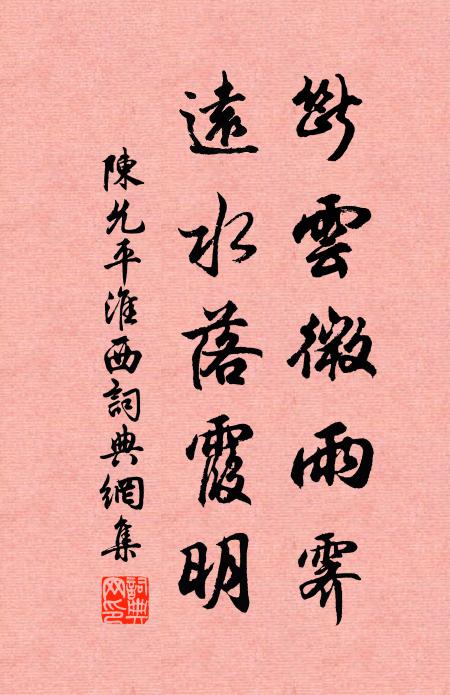 斷雲微雨霽
遠水落霞明
陳允平淮西詞典網集